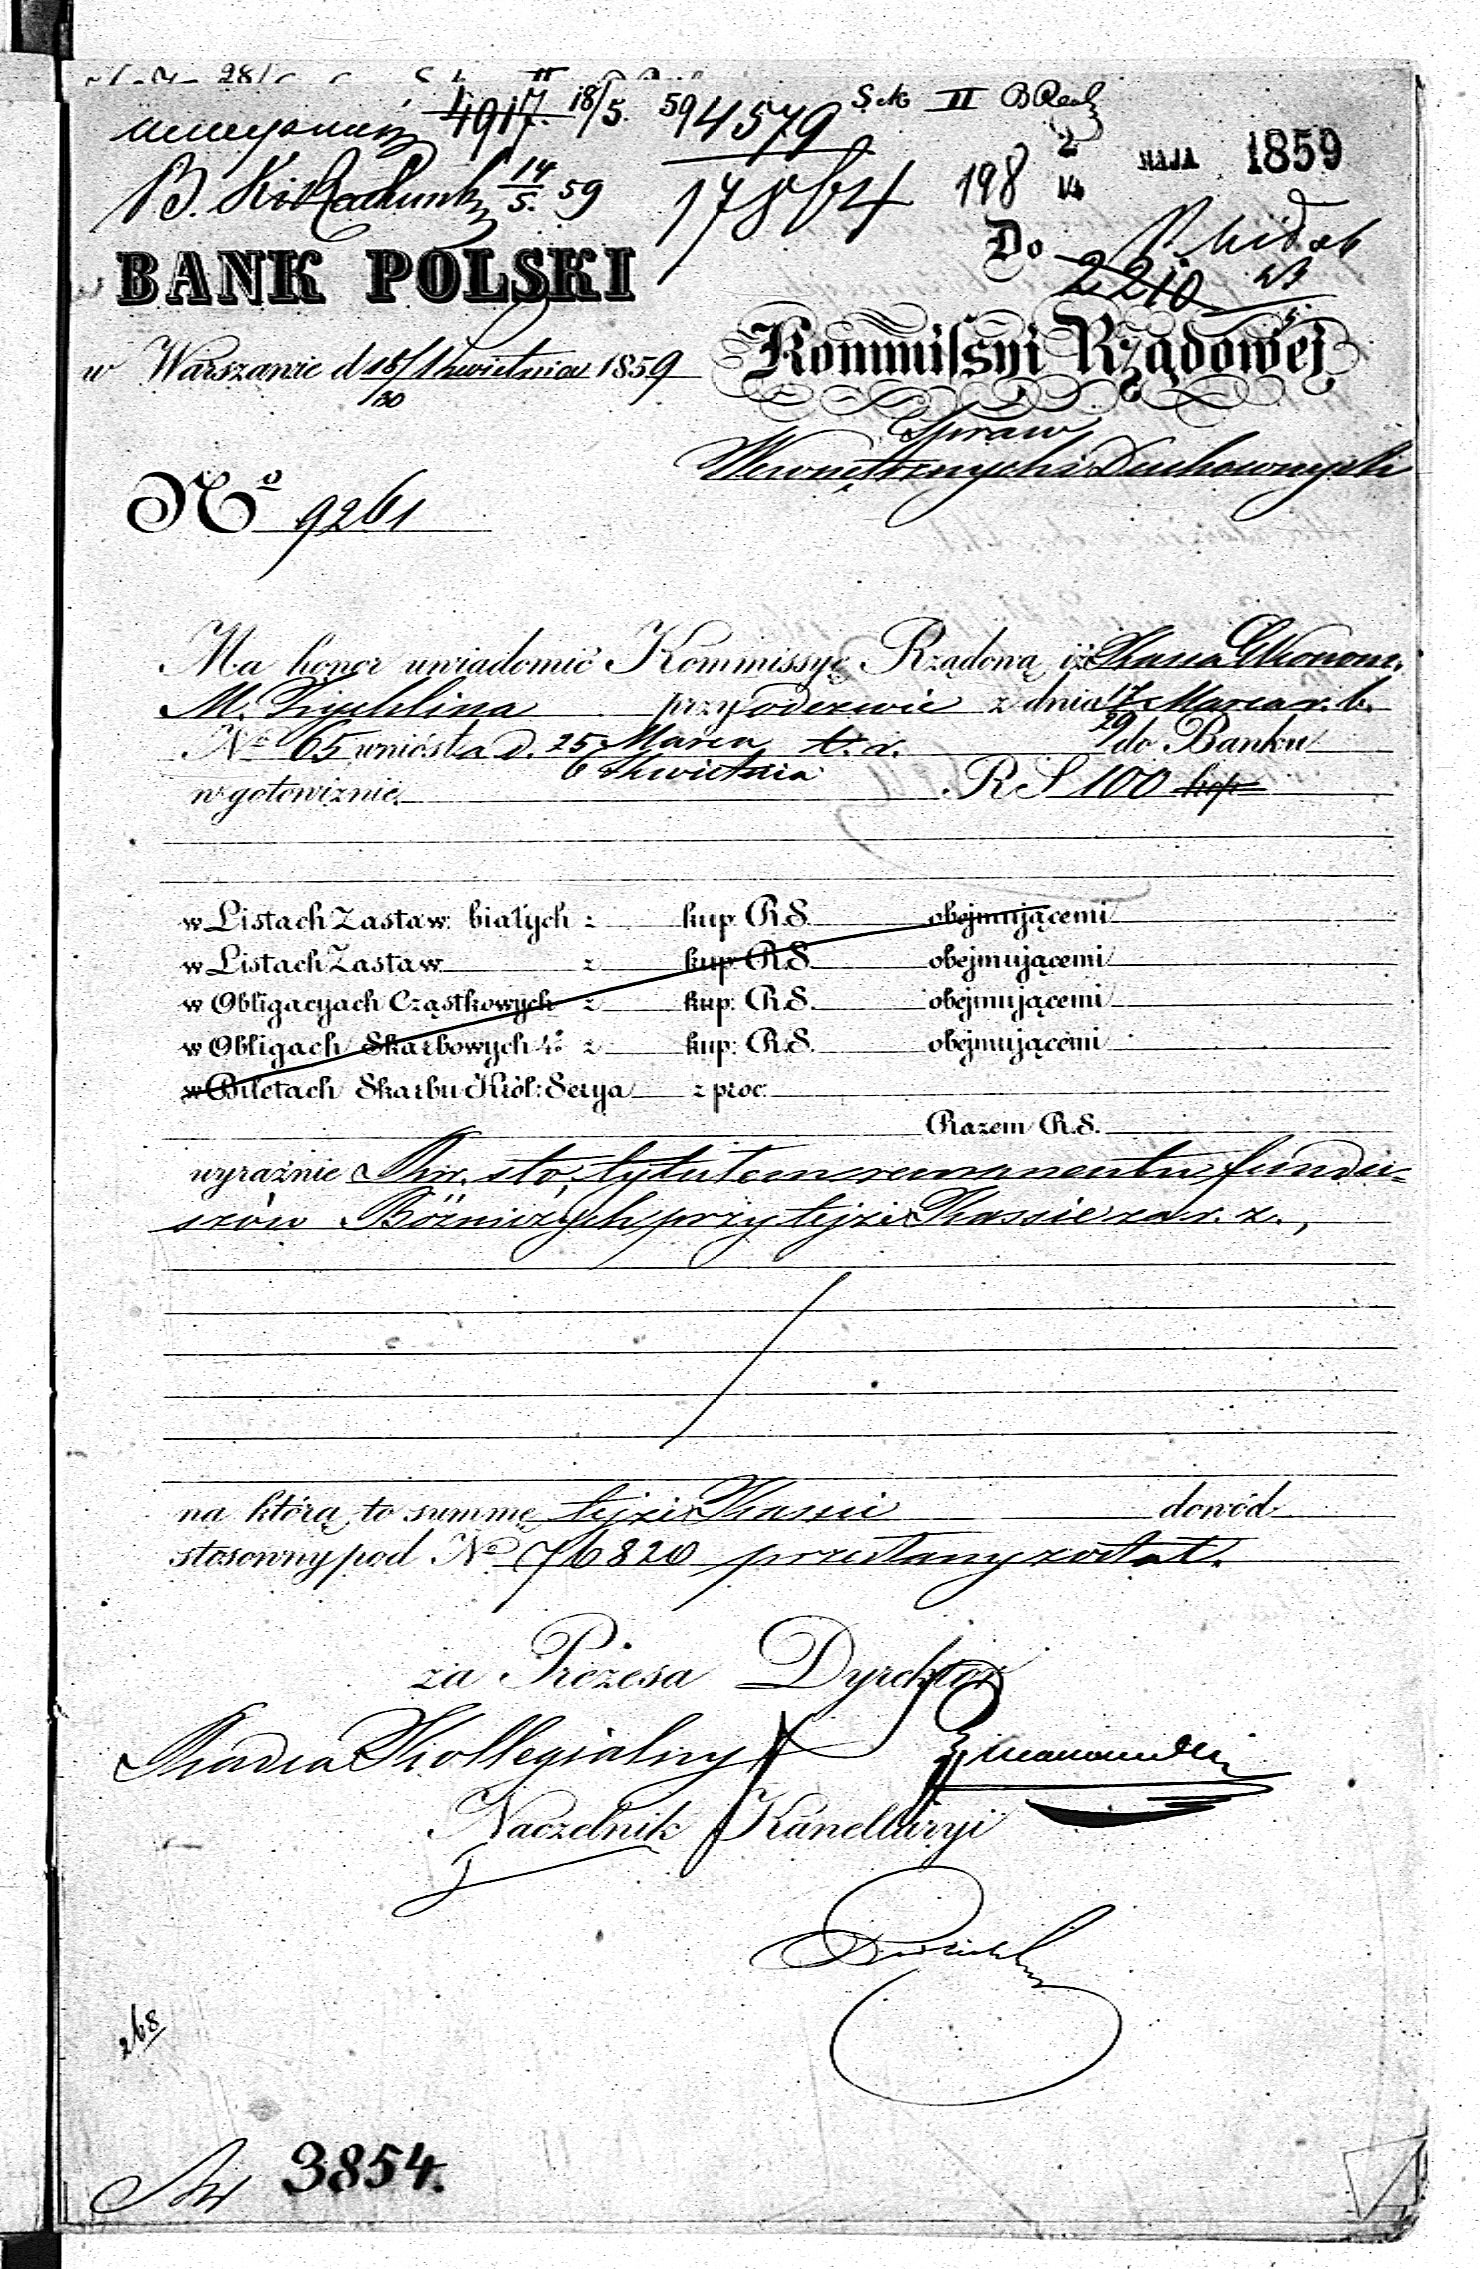 4917. 18/5. 59 4579 Sek II
B. 14/5. 59 17864 198 2/14 MAJA 1859
BANK POLSKI
Do
2210
w Warszawie d 18/30 Kwietnia 1859
Kommissyi Rządowej
Spraw
Wewnętrznych i Duchownych
No 9261
Ma honor uwiadomić Kommissyę Rządową iż Kassa Ekonom.
M. przy odezwie z dnia 17/29 Marca r. b.
No 65 wniosła d. 25 Marca / 6 Kwietnia t. r. do Banku
w gotowiźnie RS 100 kop
w Listach Zastaw. białych z kup. R.S. obejmującemi
w Listach Zastaw z kup. R.S. obejmującemi
w Obligacyach Cząstkowych z kup. R.S. obejmującemi
w Obligach Skarbowych 4% z kup. R.S. obejmującemi
w Biletach Skarbu Król: Serya z proc.
Razem R.S.
wyraźnie Rsr. sto, tytułem remanentu fundu=
szów Bóżniczych przy tejże Kassie za r. z.,
na którą to summę tejże Kassie dowód
stosowny pod No 76820 przesłany został.
za Prezesa Dyrektor
Radca Kollegialny
Naczelnik Kancellaryi
268
3854.